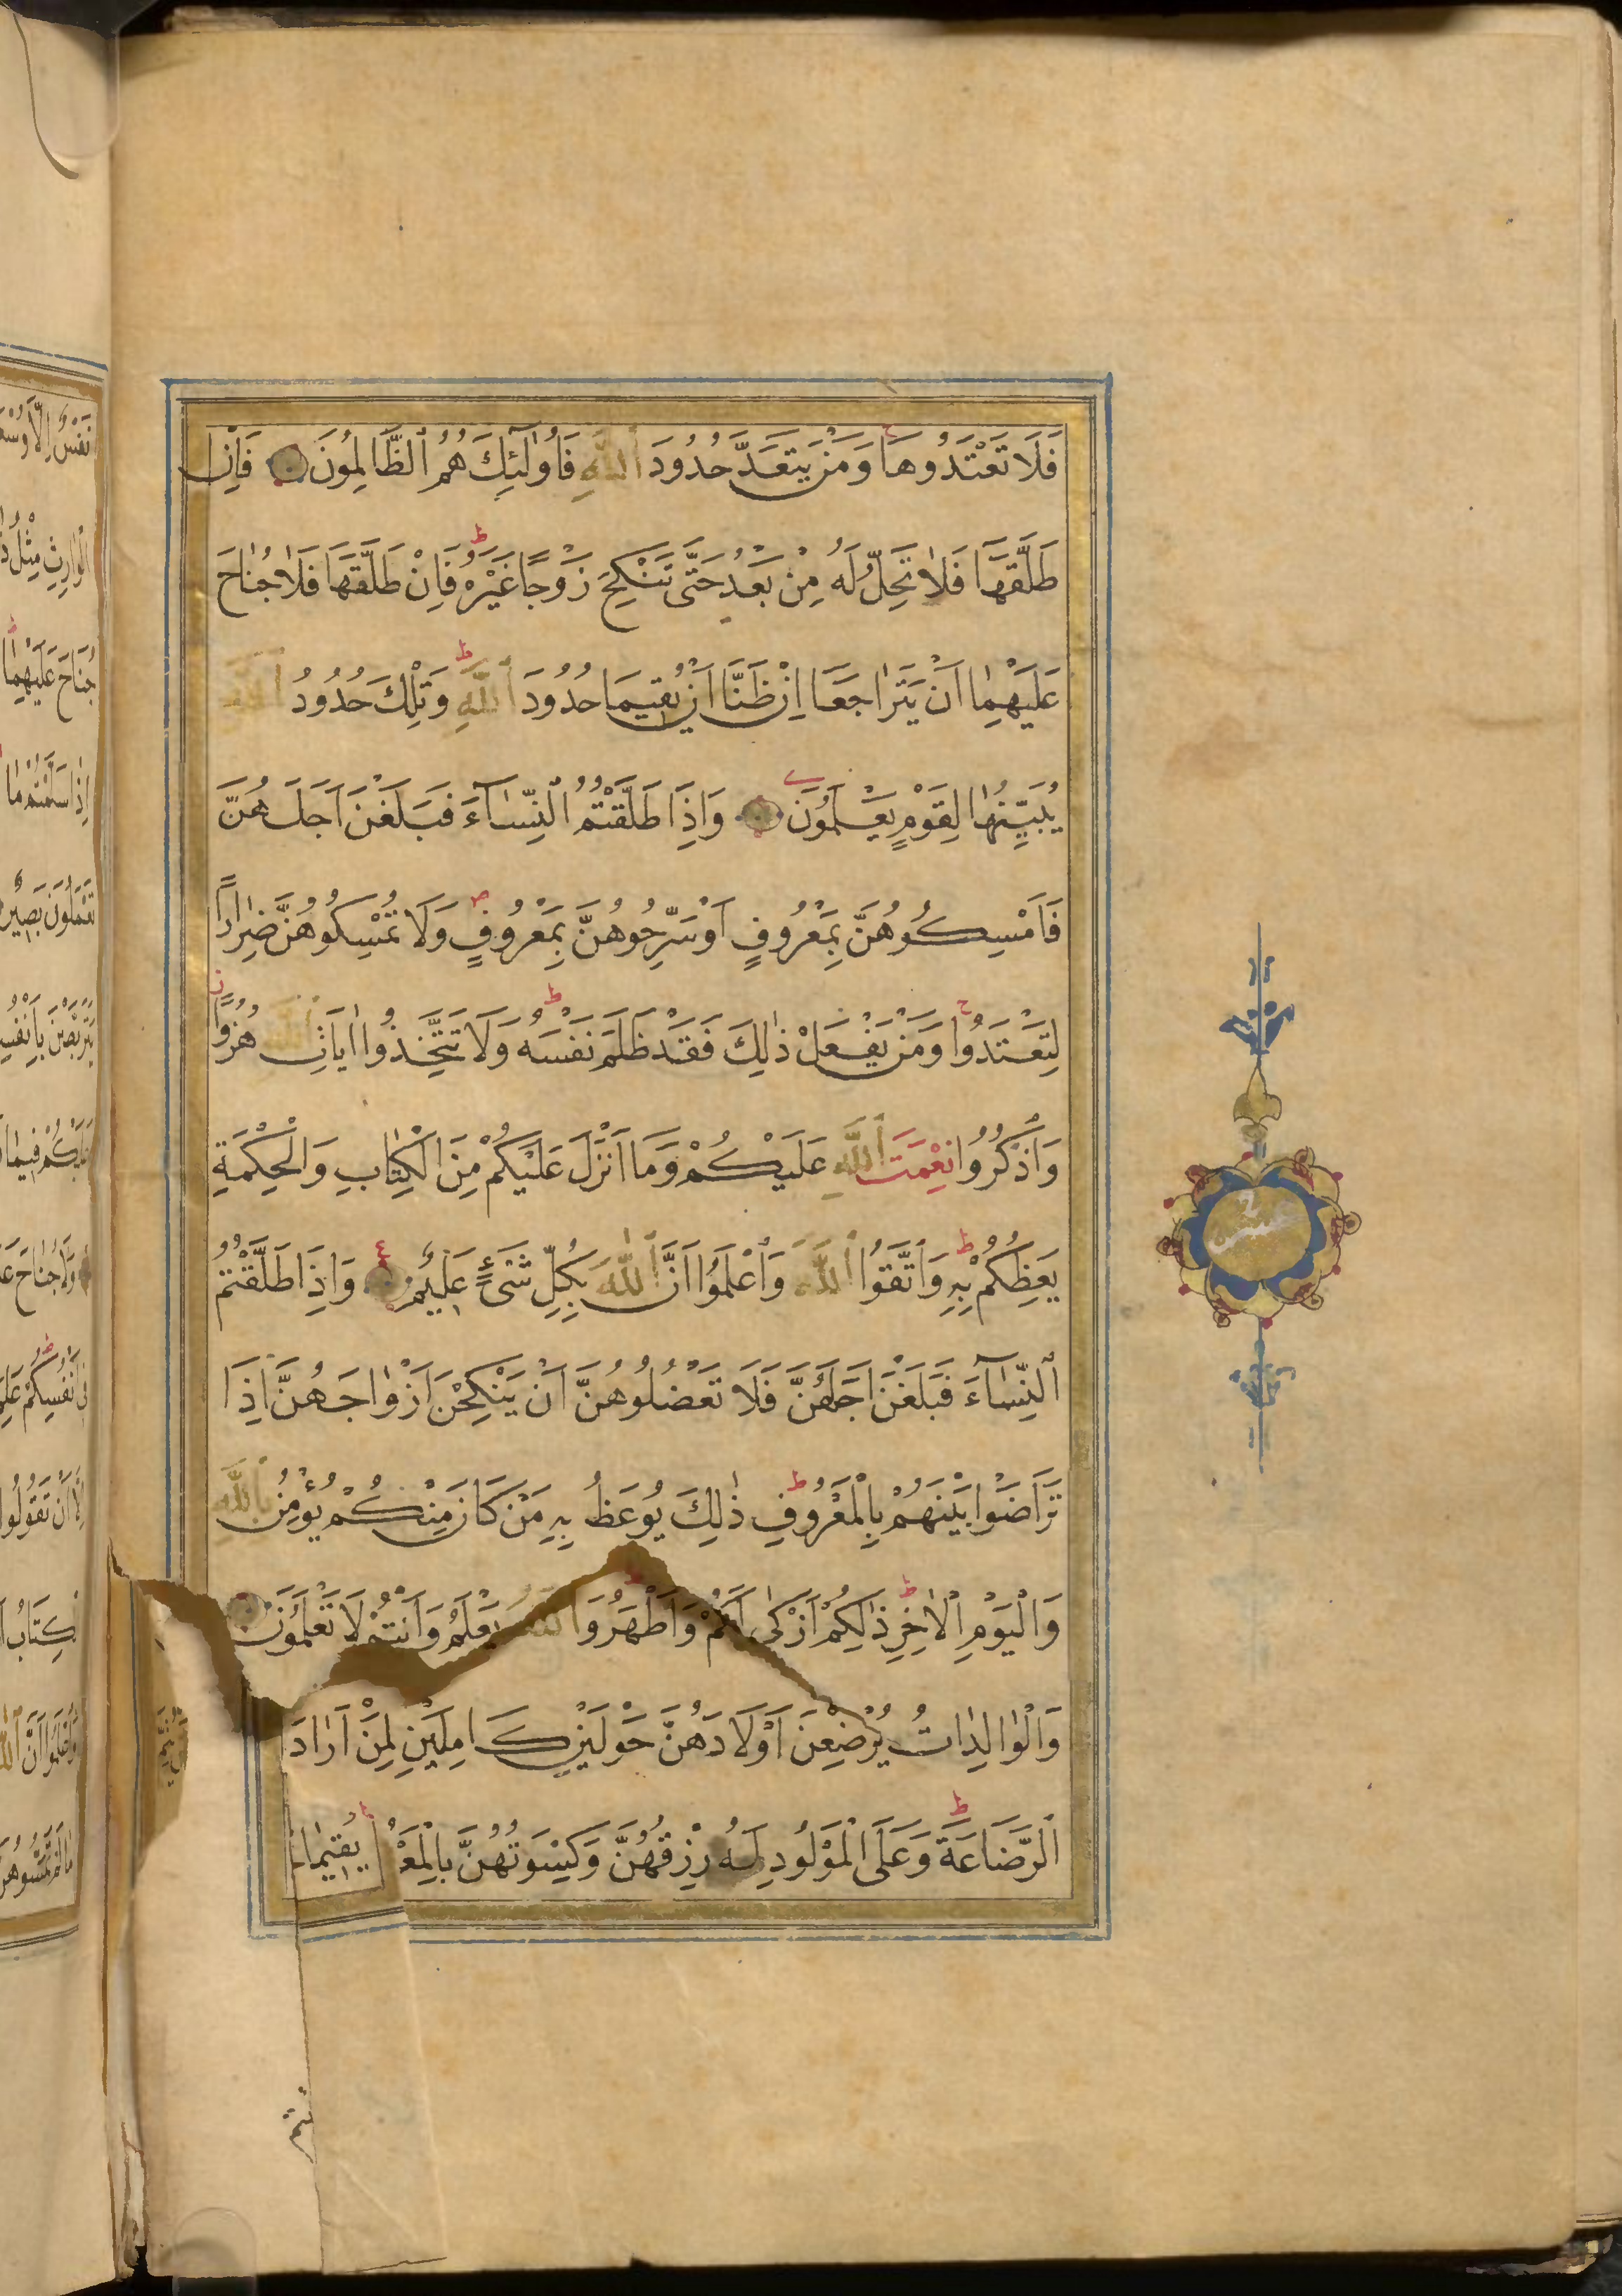 فَلَا تَعْتَدُوهَا وَمَنْ يَتَعَدَّ حُدُودَ ٱللَّهِ فَأُولٰئِكَ هُمُ ٱلظَّالِمُونَ فَاِنْ
طَلَّقَهَا فَلَا تَحِلُّ لَهُ مِنْ بَعْدُ حَتَّى تَنْكِحَ زَوْجًا غَيْرَهُ فَاِنْ طَلَّقَهَا فَلَا جُنَاحَ
عَلَيْهِمَا اَنْ يَتَرَاجَعَا اِنْ ظَنَّا اَنْ يُقِيمَا حُدُودَ ٱللَّهِ وَتِلْكَ حُدُودُ ٱللَّهِ
يُبَيِّنُهَا لِقَوْمٍ يَعْلَمُونَ وَاِذَا طَلَّقْتُمُ ٱلنِّسَآءَ فَبَلَغْنَ اَجَلَهُنَّ
فَاَمْسِكُوهُنَّ بِمَعْرُوفٍ اَوْ سَرِّحُوهُنَّ بِمَعْرُوفٍ وَلَا تُمْسِكُوهُنَّ ضِرَارًا
لِتَعْتَدُوا وَمَنْ يَفْعَلْ ذٰلِكَ فَقَدْ ظَلَمَ نَفْسَهُ وَلَا تَتَّخِذُوا اٰيَاتِ ٱللَّهِ هُزُوًا
وَاذْكُرُوا نِعْمَتَ ٱللَّهِ عَلَيْكُمْ وَمَا اَنْزَلَ عَلَيْكُمْ مِنَ الْكِتَابِ وَالْحِكْمَةِ
يَعِظُكُمْ بِهِ وَاتَّقُوا ٱللَّهَ وَاعْلَمُوا اَنَّ ٱللَّهَ بِكُلِّ شَىْءٍ عَلِيمٌ وَاِذَا طَلَّقْتُمُ
ٱلنِّسَآءَ فَبَلَغْنَ اَجَلَهُنَّ فَلَا تَعْضُلُوهُنَّ اَنْ يَنْكِحْنَ اَزْوَاجَهُنَّ اِذَا
تَرَاضَوْا بَيْنَهُمْ بِالْمَعْرُوفِ ذٰلِكَ يُوعَظُ بِهِ مَنْ كَانَ مِنْكُمْ يُؤْمِنُ بِٱللَّهِ
وَالْيَوْمِ الْاٰخِرِ ذٰلِكُمْ اَزْكٰى لَكُمْ وَاَطْهَرُ وَٱللَّهُ يَعْلَمُ وَاَنْتُمْ لَا تَعْلَمُونَ
وَالْوَالِدَاتُ يُرْضِعْنَ اَوْلَادَهُنَّ حَوْلَيْنِ كَامِلَيْنِ لِمَنْ اَرَادَ
ٱلرَّضَاعَةَ وَعَلَى الْمَوْلُودِ لَهُ رِزْقُهُنَّ وَكِسْوَتُهُنَّ بِالْمَعْ يُقِيمَا